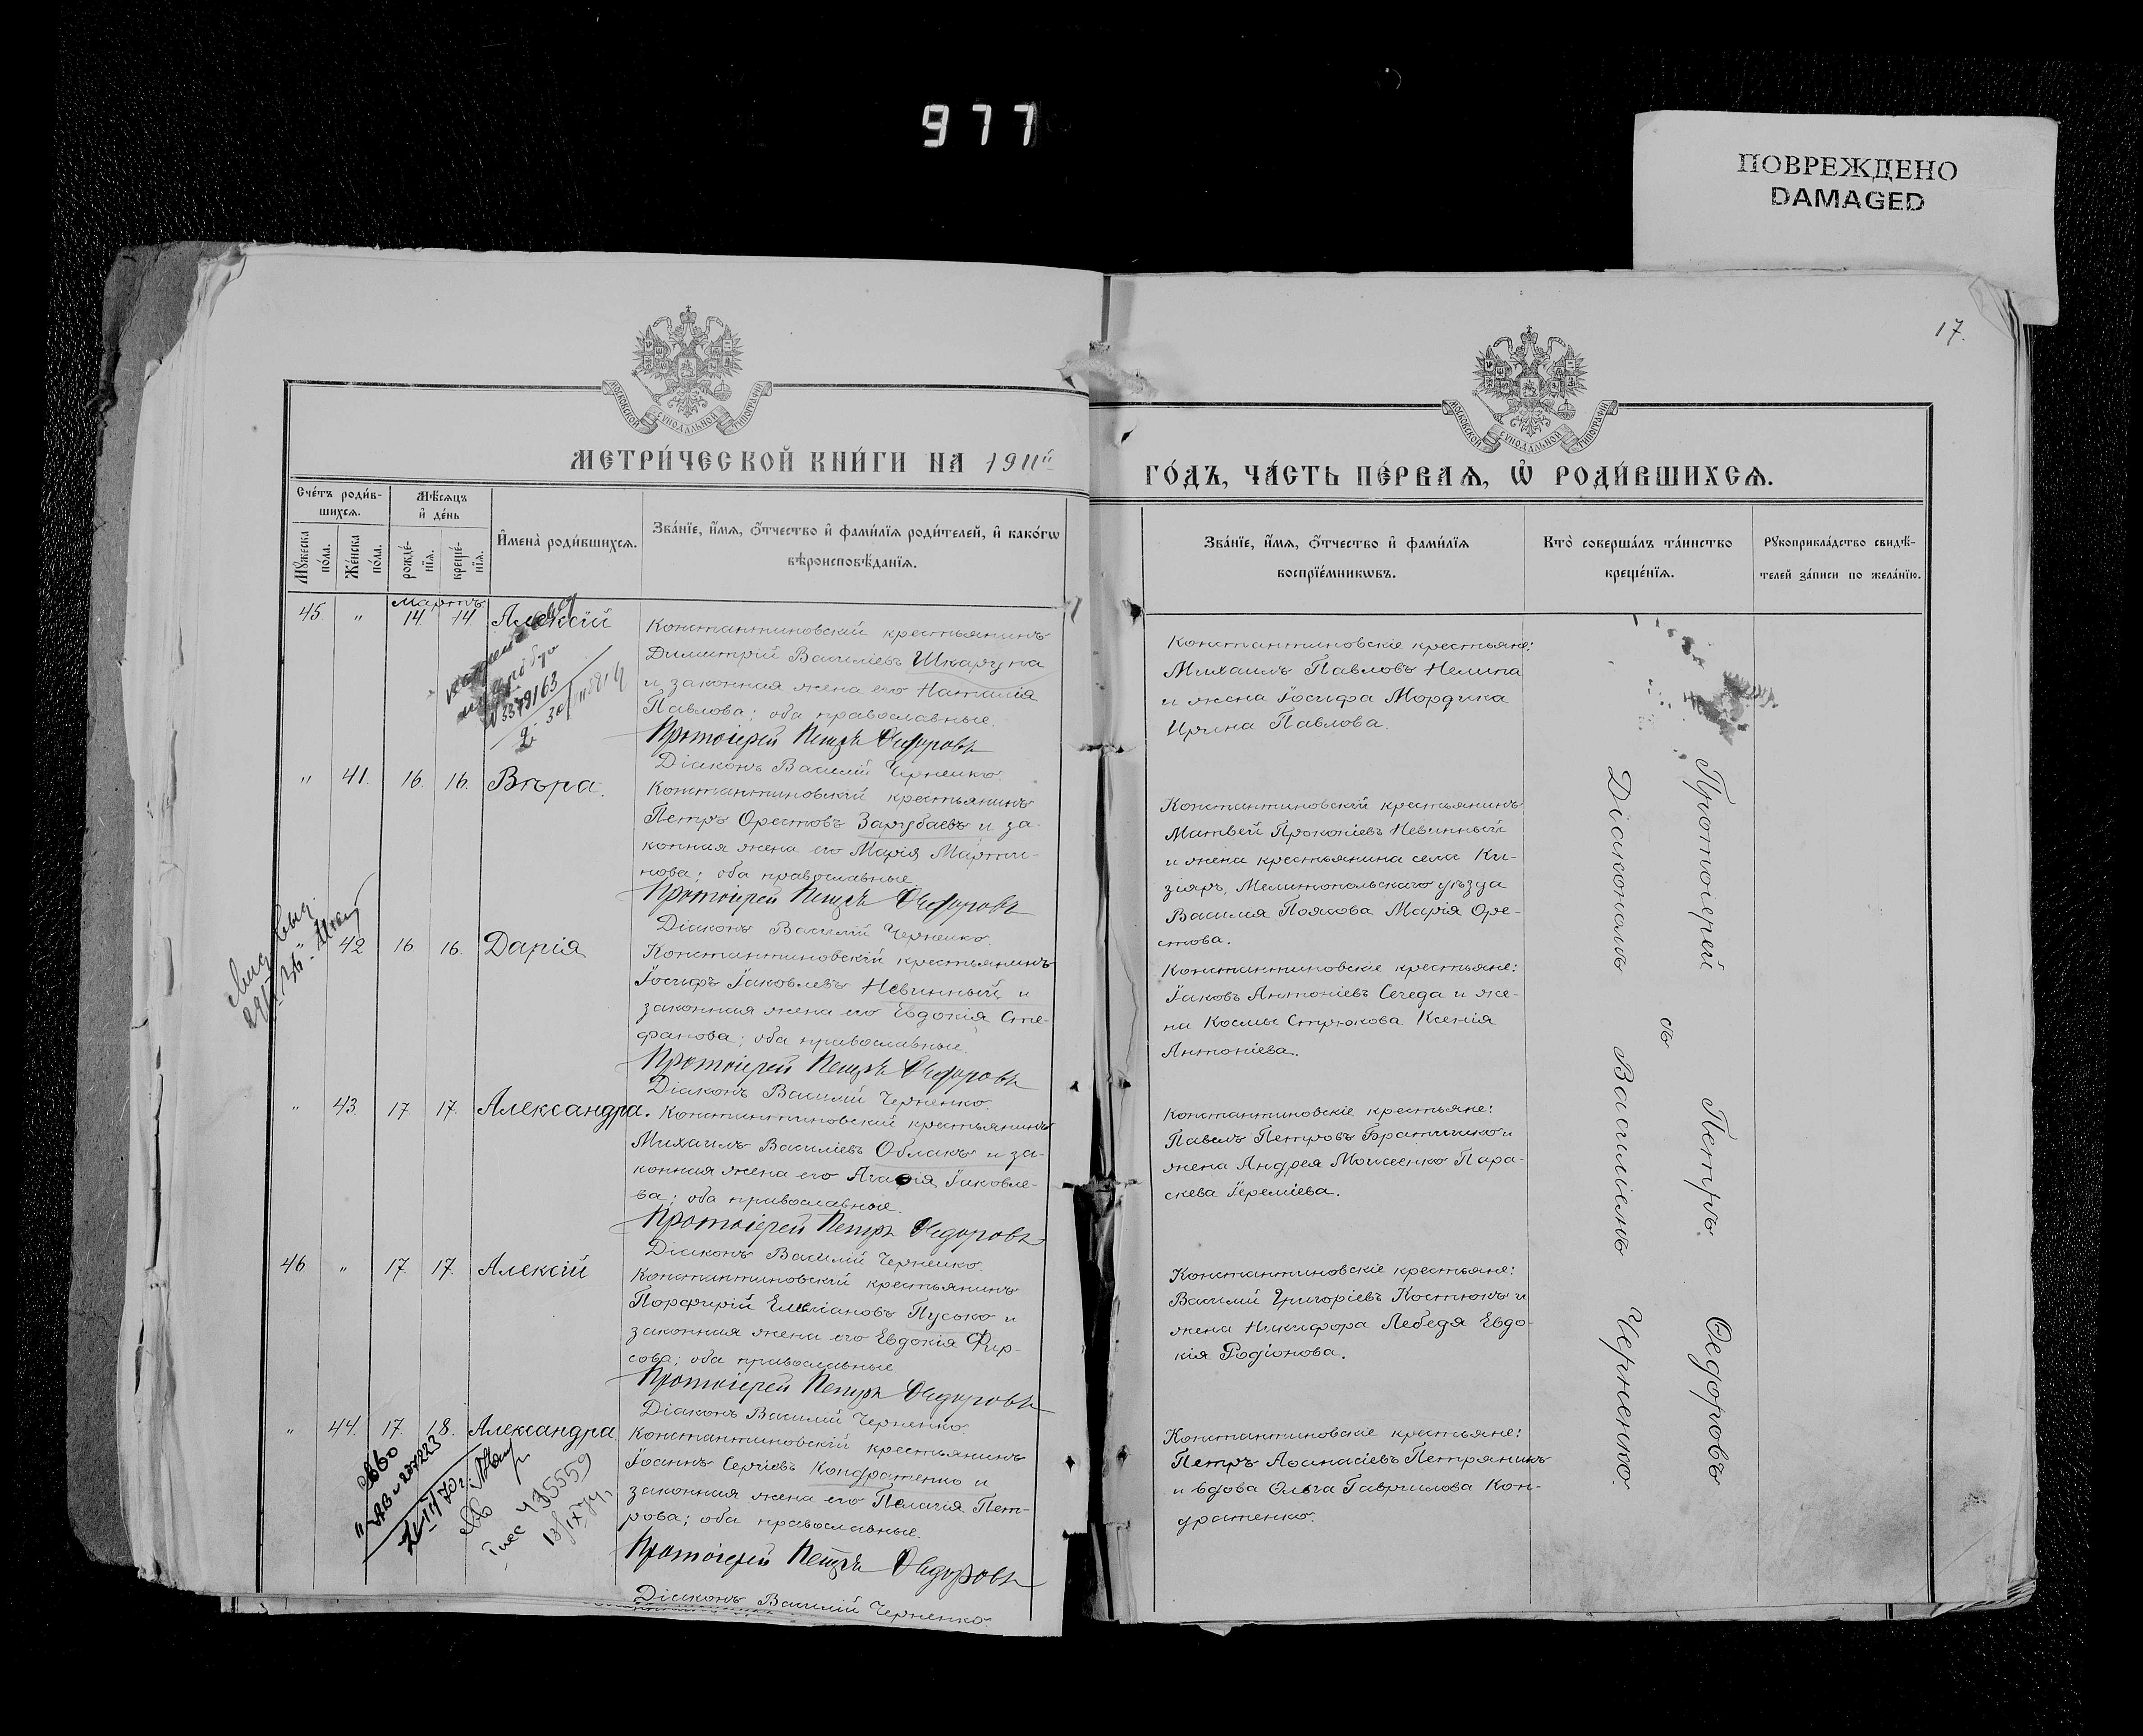 977
ПОВРЕЖДЕНО
DAMAGED
17.
МОСКОВСКОЙ СУНОДАЛЬНОЙ ТИПОГРАФІИ
МОСКОВСКОЙ СУНОДАЛЬНОЙ ТИПОГРАФІИ
МЕТРИ́ЧЕСКОЙ КНИ́ГИ НА 1911й
ГО́ДЪ, ЧА́СТЬ ПЕ́РВАѦ, Ѽ РОДИ́ВШИХСѦ.
Сче́тъ роди́в-
шихсѧ.
Мꙋ́жеска по́ла.
Же́нска по́ла.
Мѣ́сѧцъ
и҆ де́нь
рожде́-
нїѧ.
креще́-
нїѧ.
И҆мена̀ роди́вшихсѧ.
Зва́нїе, и҆́мѧ, ѻ҆́тчество и҆ фами́лїѧ роди́телей, и҆ како́гѡ
вѣроисповѣ́данїѧ.
Зва́нїе, и҆́мѧ, ѻ҆́тчество и҆ фами́лїѧ
воспрїе́мникѡвъ.
Кто̀ соверша́лъ та́инство
креще́нїѧ.
Рꙋкоприкла́дство свидѣ́-
телей за́писи по жела́нїю.
Мартъ
45. " 14. 14 Алексій
Константиновскій крестьянинъ
Димитрій Василіевъ Шкарупа
и законная жена его Наталія
Павлова; оба православные.
Протоіерей Петръ Ѳедоровъ
Діаконъ Василій Черненко.
Константиновскіе крестьяне:
Михаилъ Павловъ Нелипа
и жена Іосифа Мордика
Ирина Павлова.
N 3379163
" 41. 16. 16. Вѣра.
Константиновскій крестьянинъ
Петръ Орестовъ Зарубаевъ и за-
конная жена его Марія Марти-
нова; оба православные.
Протоіерей Петръ Ѳедоровъ
Діаконъ Василій Черненко.
Константиновскій крестьянинъ
Матвей Прокопіевъ Невинный
и жена крестьянина села Ки-
зіяръ, Мелитопольскаго уѣзда
Василія Поякова Марія Оре-
стова.
" 42 16. 16. Дарія
Константиновскій крестьянинъ
Іосифъ Іаковлевъ Невинный и
законная жена его Евдокія Сте-
фанова; оба православные.
Протоіерей Петръ Ѳедоровъ
Діаконъ Василій Черненко.
Константиновскіе крестьяне:
Іаковъ Антоніевъ Сегеда и же-
на Космы Стрюкова Ксенія
Антоніева.
" 43. 17. 17. Александра.
Константиновскій крестьянинъ
Михаилъ Василіевъ Облакъ и за-
конная жена его Агафія Іаковле-
ва; оба православные.
Протоіерей Петръ Ѳедоровъ
Діаконъ Василій Черненко.
Константиновскіе крестьяне:
Павелъ Петровъ Братишко и
жена Андрея Моисеенко Пара-
скева Іереміева.
46. " 17. 17. Алексій
Константиновскій крестьянинъ
Порфирій Емеліановъ Пусько и
законная жена его Евдокія Фир-
сова; оба православные
Протоіерей Петръ Ѳедоровъ
Діаконъ Василій Черненко.
Константиновскіе крестьяне:
Василій Григоріевъ Костюкъ и
жена Никифора Лебедя Евдо-
кія Родіонова.
" 44. 17. 18. Александра.
Константиновскій крестьянинъ
Іоаннъ Сергіевъ Кондратенко и
законная жена его Пелагія Пет-
рова; оба православные.
Протоіерей Петръ Ѳедоровъ
Діаконъ Василій Черненко.
Константиновскіе крестьяне:
Петръ Аѳанасіевъ Петряникъ
и вдова Ольга Гавриилова Кон-
дратенко.
435559
13/IX 74,
Протоіерей Петръ Ѳедоровъ
съ
Діакономъ Василіемъ Черненко.